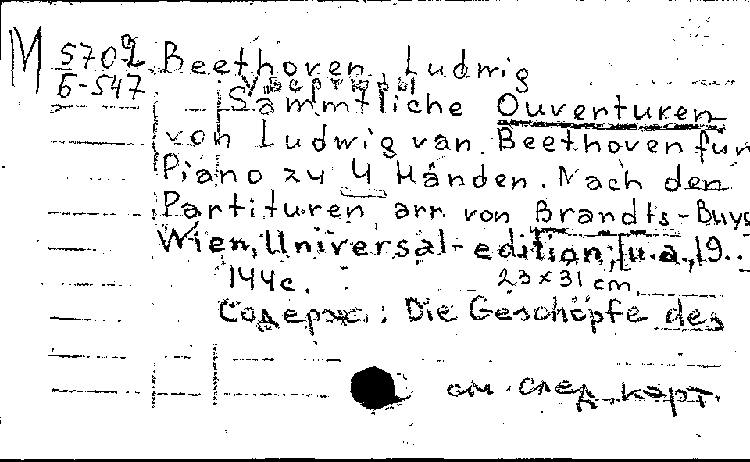 M 570 Beethoven, Ludwig
6-547 Увертюры
Sämmtliche Ouverturen
von Ludwig van Beethoven für
Piano zu 4 Händen. Nach den
Partituren arr von Brandts-Buys
Wien, Universal-edition; [u.a., 19..
144с. 23×31 cm.
Содерж.: Die Geschöpfe des
см. след. карт.